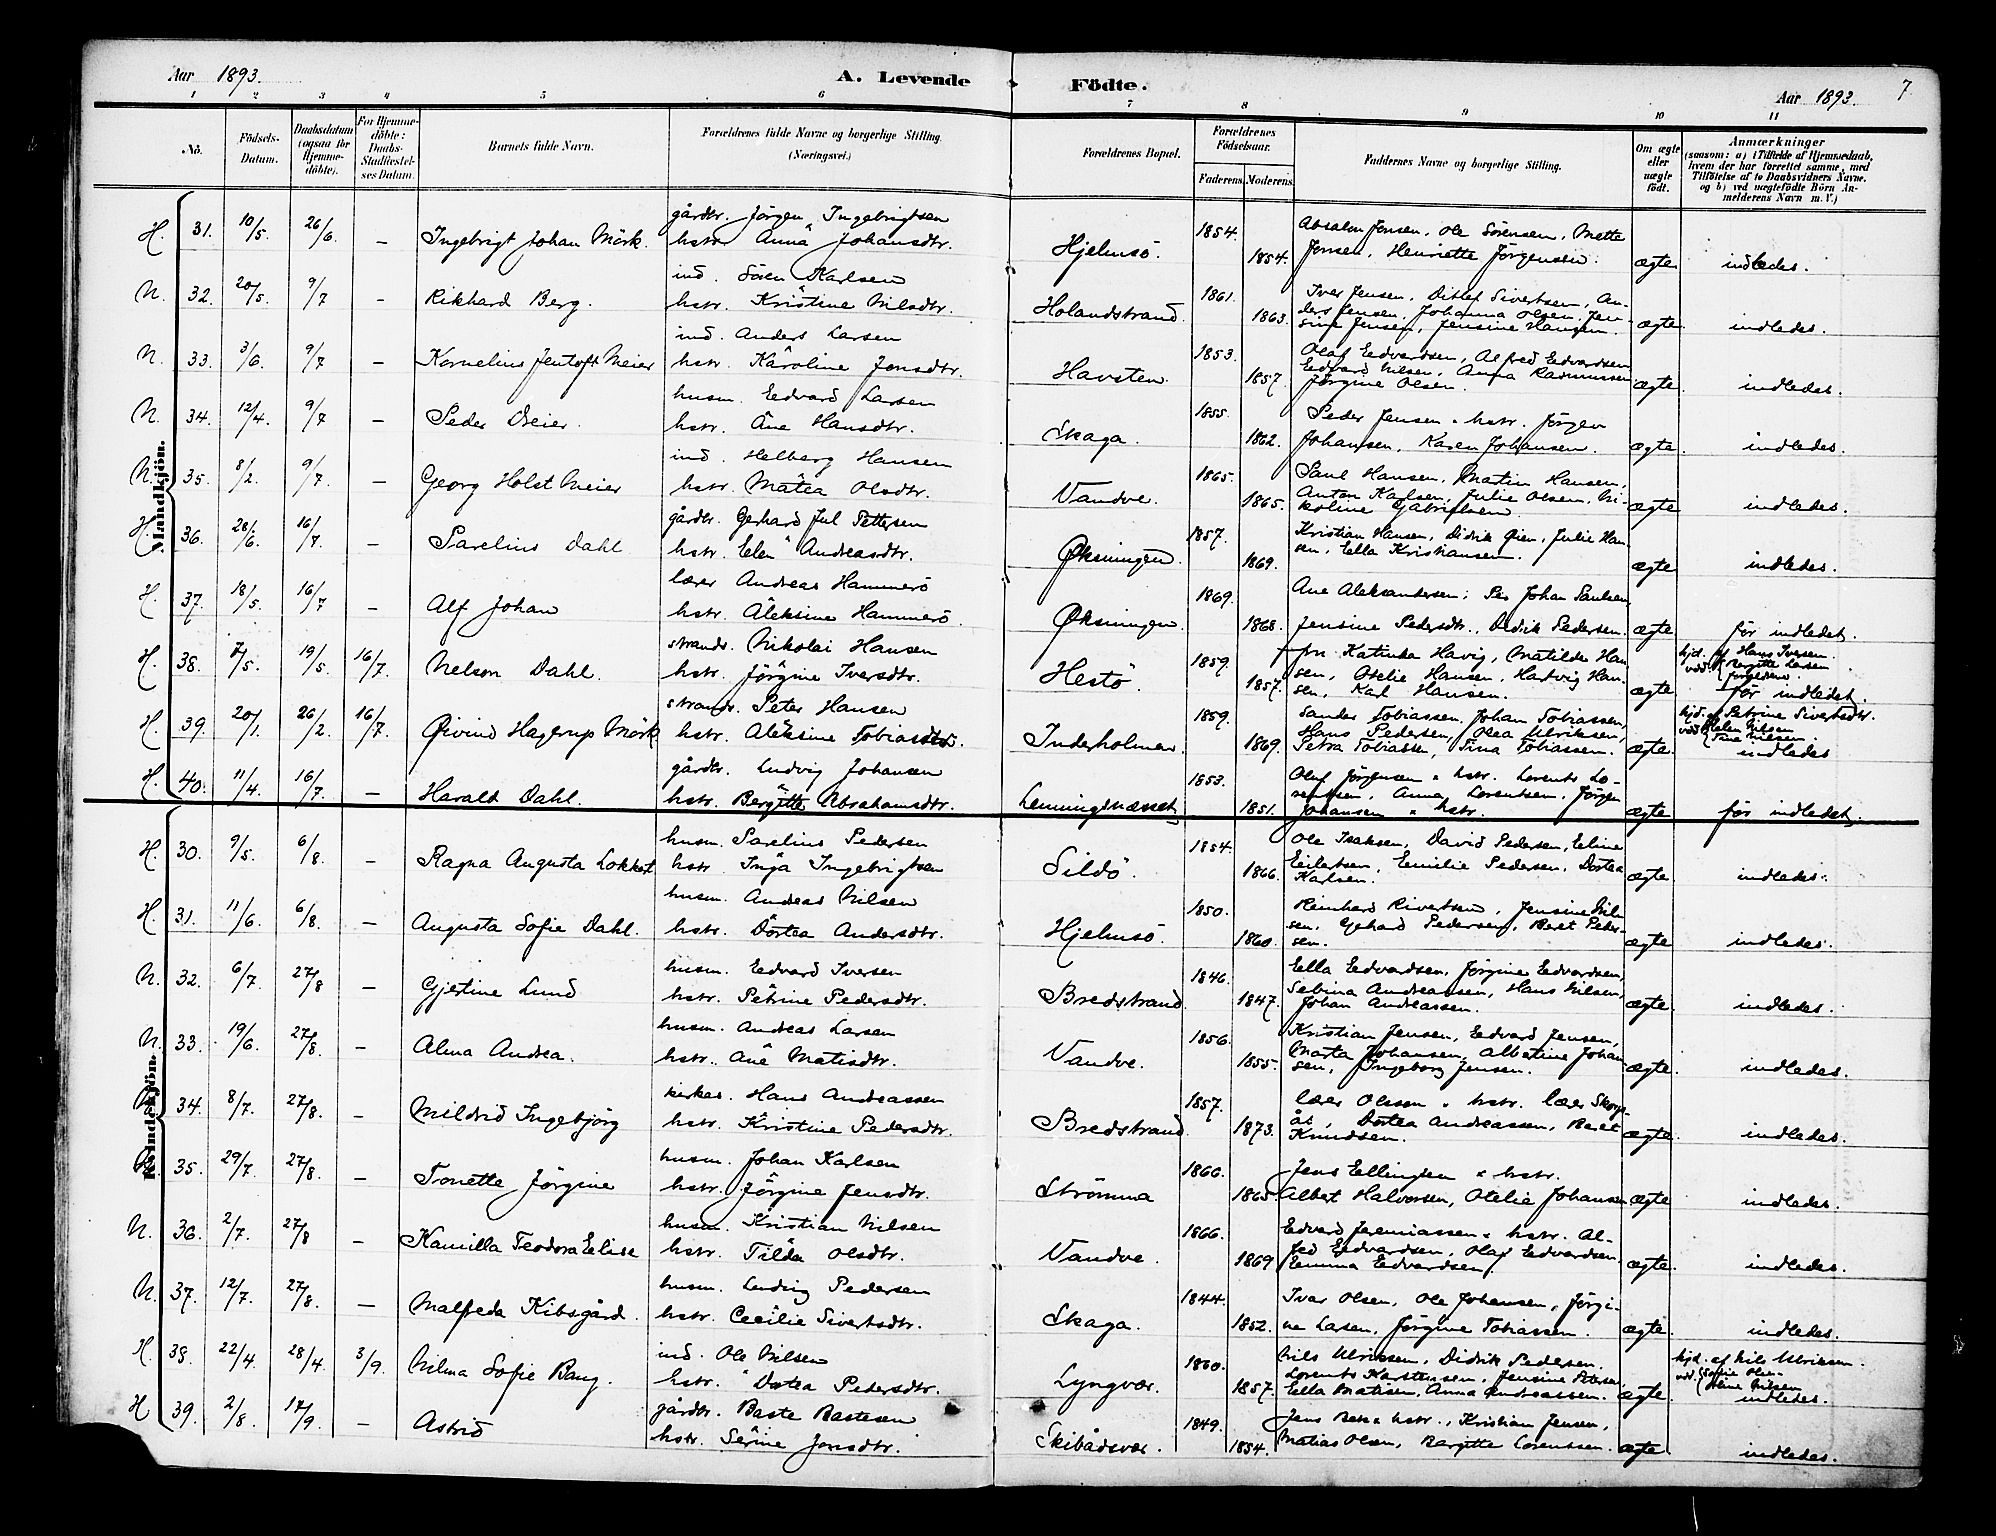 Aar 1893. A. Levende Födte. Aar 1893. 7
1 2 3 4 5 6 7 8 9 10 11
No. Födsels-Datum. Daabsdatum (ogsaa for Hjemmedöbte). For Hjemmedöbte: Daabs-Stadfæstelses Datum. Barnets fulde Navn. Forældrenes fulde Navne og borgerlige Stilling. (Næringsvei.) Forældrenes Bopæl. Forældrenes Födselsaar. Faderens. Moderens. Faddernes Navne og borgerlige Stilling. Om ægte eller uægte födt. Anmærkninger (saasom: a) i Tilfælde af Hjemmedaab, hvem der har forrettet samme, med Tilföielse af to Daabsvidners Navne, og b) ved uægtefödte Börn Anmelderens Navn m. V.)
Mandkjön.
H. 31. 10/5. 26/6. – Ingebrigt Johan Mörk. gårdbr. Jörgen Ingebrigtsen
hstr. Anna Johansdtr. Hjelmsö. 1854. 1854. Absalon Jensen, Ole Sörensen, Mette
Jensen, Henriette Jörgensen. ægte indledes.
N. 32. 20/5. 9/7 – Rikhard Berg. ind. Sören Karlsen
hstr. Kristine Nilsdtr. Holandstrand. 1861. 1863. Iver Jensen, Ditlef Sivertsen, An-
ders Jensen, Johanna Olsen, Jen-
sine Jensen, Jensine Hansen. ægte indledes.
N. 33. 3/6. 9/7 – Kornelius Jentoft Meier ind. Anders Larsen
hstr. Karoline Jonsdtr. Havsten. 1853. 1857. Olaf Edvardsen, Alfred Edvardsen
Edvard Nilsen, Anna Rasmussen
Jörgine Olsen. ægte. indledes.
N. 34. 12/4. 9/7 – Peder Dreier. husm. Edvard Larsen
hstr. Ane Hansdtr. Skaga. 1855. 1862. Peder Jensen " hstr. Jörgen
Johansen, Karen Johansen. ægte. indledes.
N. 35. 8/2. 9/7. – Georg Holst Meier ind. Helberg Hansen
hstr. Matea Olsdtr. Vandve. 1865. 1865. Paul Hansen, Martin Hansen,
Anton Karlsen, Julie Olsen, Ni-
koline Gabrielsen. ægte indledes.
H. 36. 28/6. 16/7. – Parelius Dahl gårdbr. Gerhard Jul Pettersen
hstr. Elen Andreasdtr. Øksningen. 1857. 1869. Kristian Hansen, Didrik Gien, Julie Han-
sen, Ella Kristiansen. ægte indledes.
H. 37. 18/5. 16/7 – Alf Johan lærer Andreas Hammerö
hstr. Aleksine Hammerö. Øksningen. 1869. 1868. Ane Aleksandersen, Per Johan Paulsen,
Jensine Pedersdtr., Didrik Pedersen. ægte för indledet.
H. 38. 7/5. 19/5. 16/7. Nelson Dahl. strands. Nikolai Hansen
hstr. Jörgine Iversdtr. Hestö. 1859. 1857. frn Katinka Havig, Matilde Han-
sen, Otelie Hansen, Hartvig Han-
sen, Karl Hansen. ægte hjd. af Hans Iversen.
vdd. Bergitte Larsen
forældrene
för indledet.
H. 39. 20/1. 26/2. 16/7. Øivind Hagerup Mörk strands. Peter Hansen
hstr. Aleksine Tobiasdtr. Inderholmen. 1859. 1869. Sander Tobiassen, Johan Tobiassen,
Hans Pedersen, Olea Ulriksen,
Petra Tobiassen, Tina Tobiassen. ægte hjd. af Petrine Sivertsdtr.
vdd. Helen Nilsen
Tina Nilsen
indledes
H. 40. 11/4. 16/7. – Harald Dahl. gårdbr. Ludvig Johansen
hstr. Bergitte Abrahamsdtr. Lenningsnæsset. 1853. 1851. Oluf Jörgensen " hstr. Lorents Lo-
rentsen, Anna Lorentsen, Jörgen
Johansen " hstr. ægte för indledet.
Kvindekjön.
H. 30. 9/5. 6/8. – Ragna Augusta Lokket husm. Parelius Pedersen
hstr. Inga Ingebrigtsen Sildö. 1854. 1866. Ole Isaksen, David Pedersen, Eline
Eilertsen, Emilie Pedersen, Dortea
Karlsen. ægte. indledes.
H. 31. 11/6. 6/8. – Augusta Sofie Dahl. husm. Andreas Nilsen
hstr. Dortea Andersdtr. Hjelmsö. 1850. 1860. Reinhard Rivertsen, Jensine Niel-
sen, Gerhard Pedersen, Beret Peder-
sen. ægte indledes.
N. 32. 6/7. 27/8 – Gjertine Lund husm. Edvard Iversen
hstr. Petrine Pedersdtr. Bredstrand. 1846. 1847. Ella Edvardsen, Jörgine Edvardsen,
Sebina Andreassen, Hans Nilsen,
Johan Andreassen. ægte. indledes.
N. 33. 19/6. 27/8. – Alma Andrea. husm. Andreas Larsen
hstr. Ane Matisdtr. Vandve. 1856. 1855. Kristian Jensen, Edvard Jensen,
Marta Johansen, Albertine Johan-
sen, Ingeborg Jensen. ægte. indledes.
N. 34. 8/7. 27/8. – Mildrid Ingebjörg kirkes. Hans Andreassen
hstr. Kristine Pedersdtr. Bredstrand. 1857. 1873. lærer Olsen " hstr. lærer Skorp-
åt, Dortea Andreassen, Beret
Knudsen. ægte. indledes.
N. 35. 29/7. 27/8. – Tonette Jörgine husm. Johan Karlsen
hstr. Jörgine Jensdtr. Strömma 1860. 1865. Jens Ellingsen " hstr.
Albert Halvorsen, Otelie Johansen ægte indledes.
N. 36. 2/7. 27/8 – Kamilla Teodora Elise husm. Kristian Nilsen
hstr. Tilda Olsdtr. Vandve. 1866. 1869 Edvard Jeremiassen " hstr. Al-
fred Edvardsen, Olaf Edvardsen
Emma Edvardsen. ægte. indledes.
N. 37. 12/7. 27/8. – Malfreda Kibsgård. husm. Ludvig Pedersen
hstr. Cecilie Sivertsdtr. Skaga. 1844. 1852. Ivar Olsen, Ole Johansen, Jörgi-
ne Larsen, Jörgine Tobiassen. ægte. indledes.
H. 38. 22/4. 28/4. 3/9. Vilma Sofie Bang. ind. Ole Nilsen
hstr. Dortea Pedersdtr. Lyngvær. 1860. 1857. Nils Ulriksen, Didrik Pedersen.
Lorents Karstensen, Jensine Petersen,
Ella Matisen, Anna Andreassen. ægte. hjd. af Nils Ulriksen.
vdd. Sofie Ols
Oline Nilsen
indledes.
H 39. 2/8. 17/9. – Astrid gårdbr. Baste Bastesen
hstr. Serine Jonsdtr. Skibådsvær. 1849. 1854. Jens Beck " hstr., Kristian Jensen,
Matias Olsen, Bergitte Lorentsen. ægte. indledes.